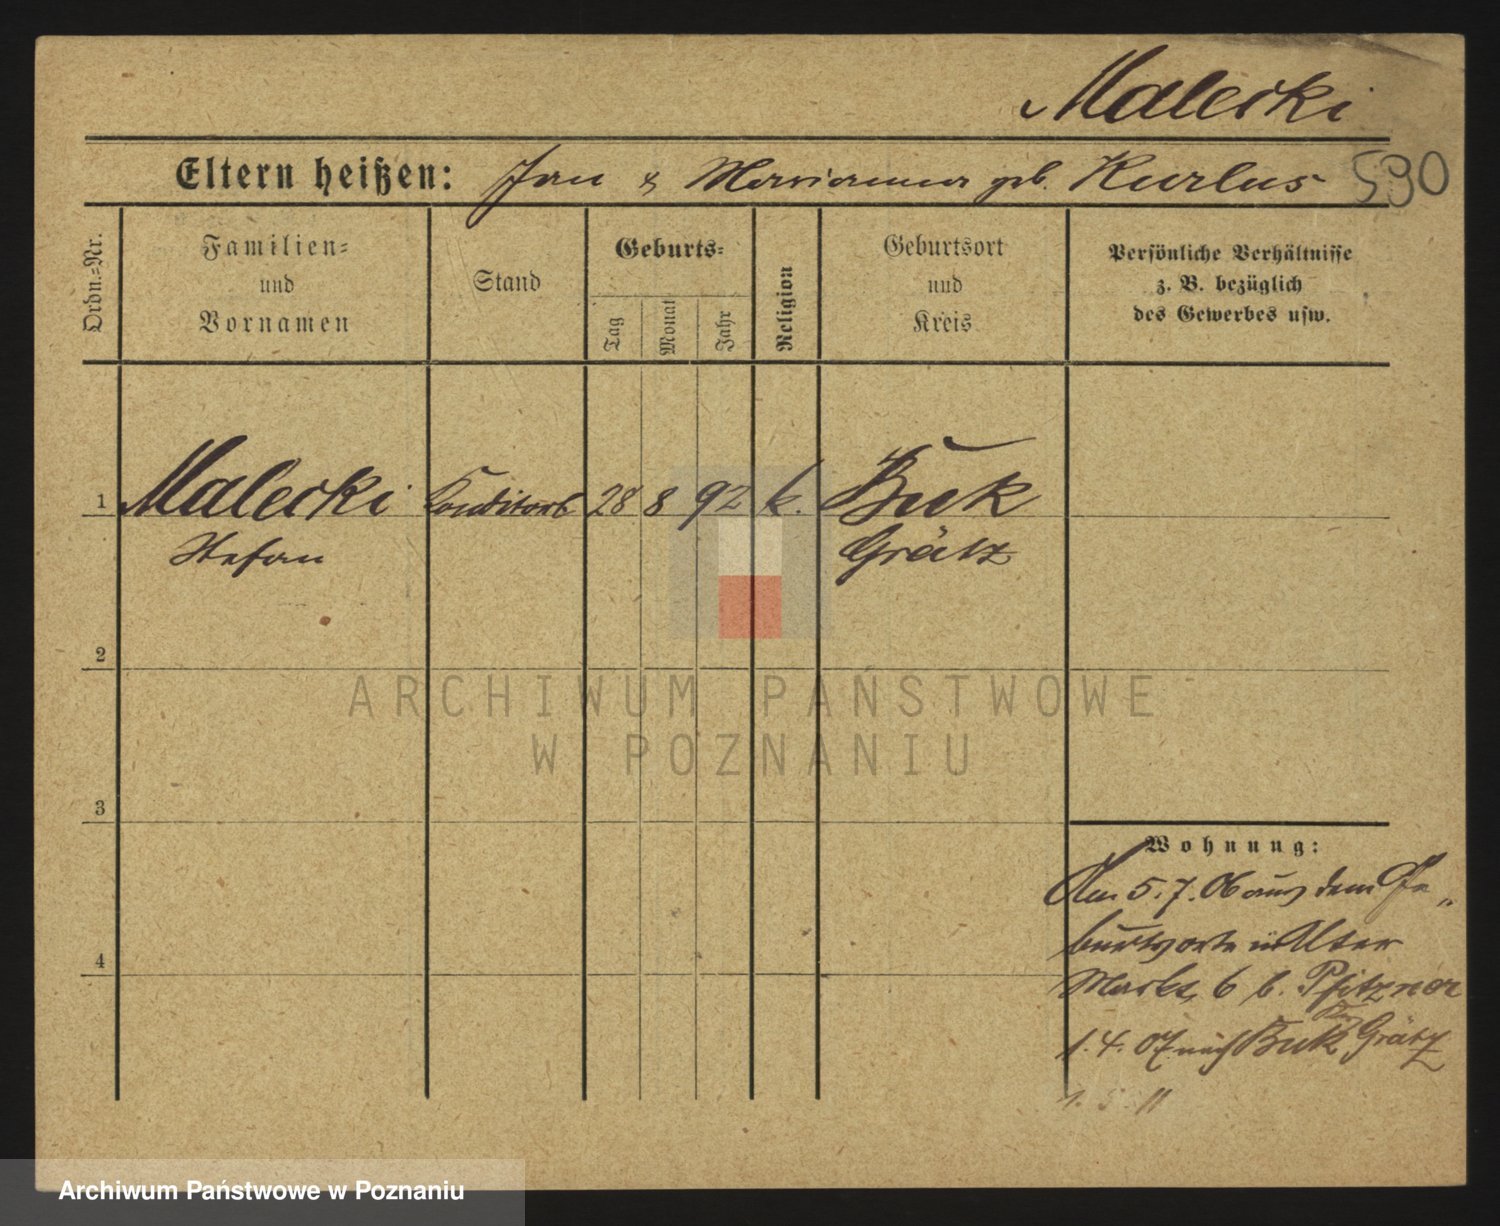 Malecki
Eltern heißen: Jan & Marianna geb. Kurlus 590
Ordn.=Nr.
Familien=
und
Vornamen
Stand
Geburts=
Tag
Monat
Jahr
Religion
Geburtsort
und
Kreis
Persönliche Verhältnisse
z. B. bezüglich
des Gewerbes usw.
1 Malecki Konditorl 28 8 92 k. Buk
Stefan Grätz
2
ARCHIWUM PAŃSTWOWE
W POZNANIU
3
Wohnung:
Am 5.7.06 aus dem Ge„
burtsorte in Alter
4
Markt 6 b. Pfitzner
1.4.07 nach Buk Grätz
Archiwum Państwowe w Poznaniu